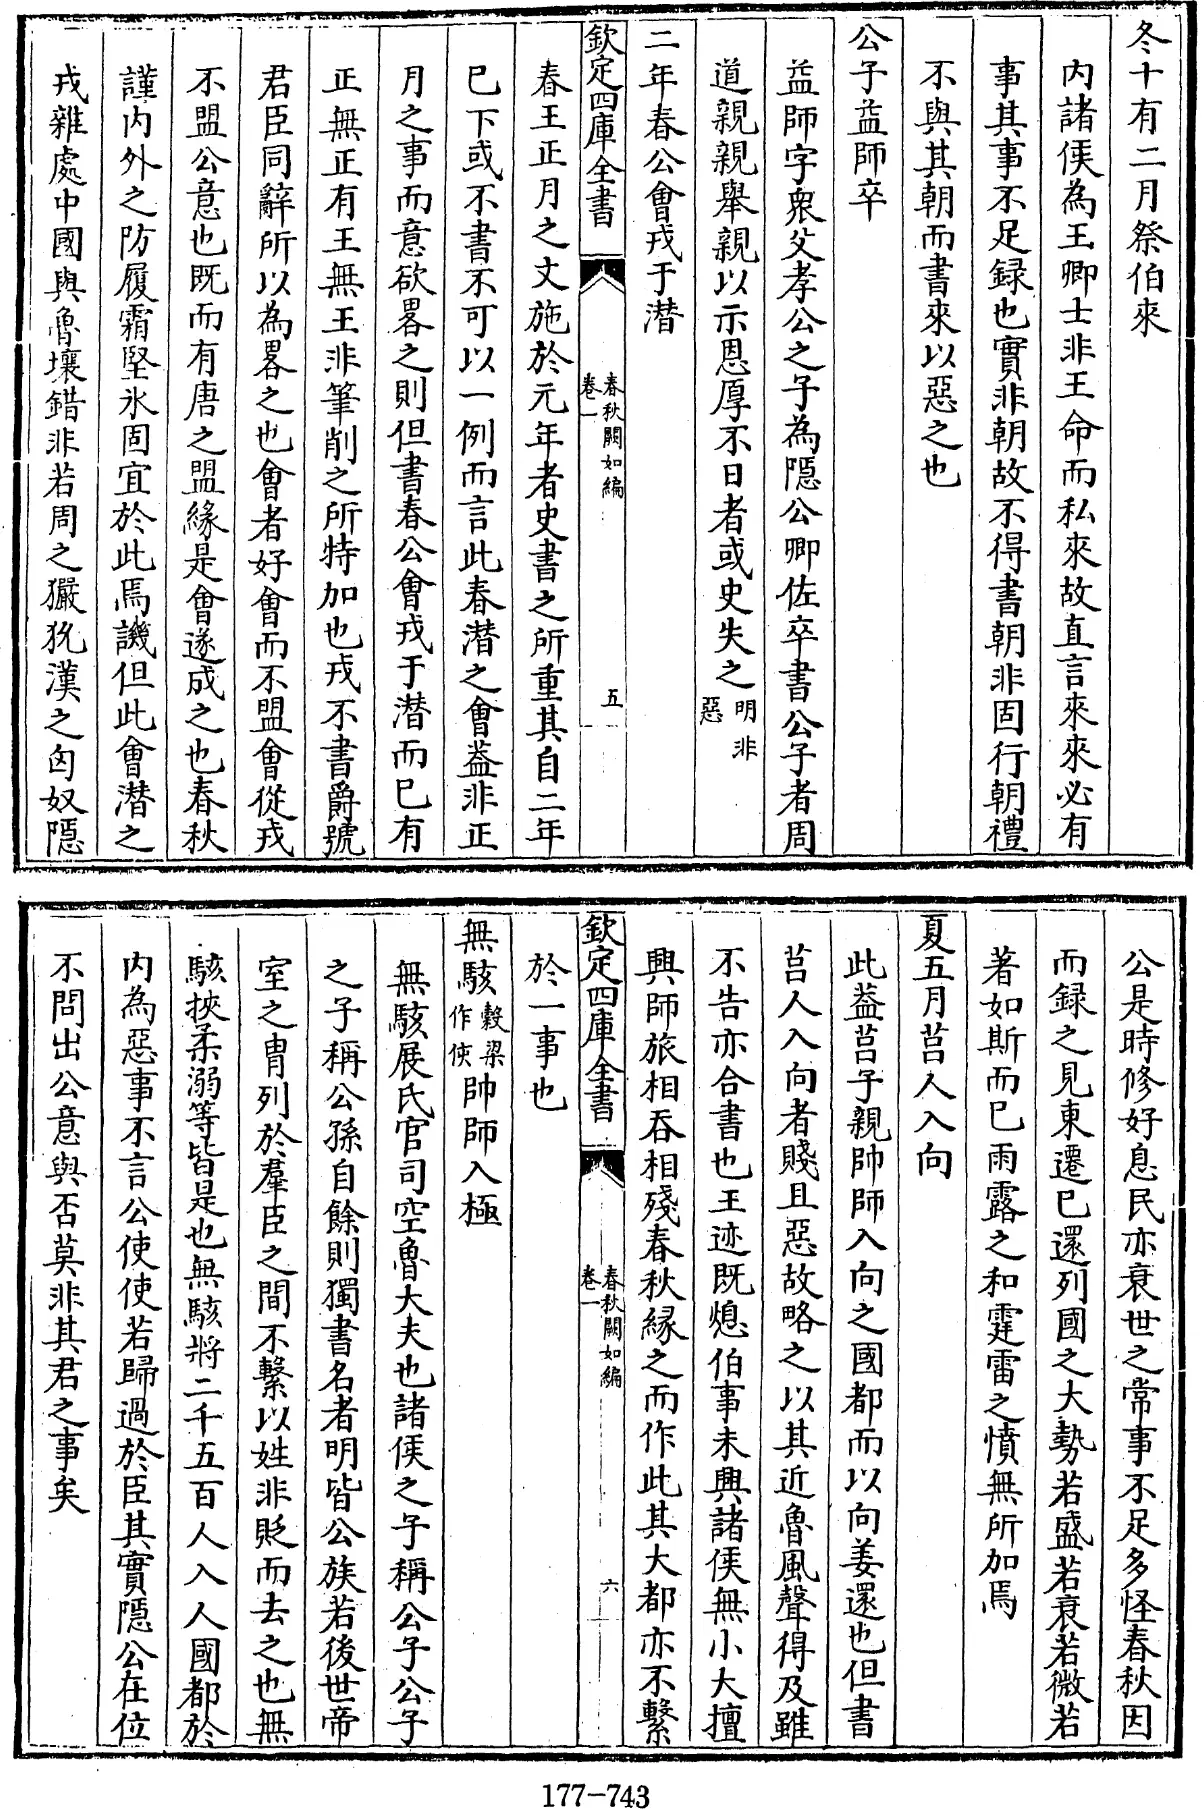 冬十有二月祭伯來
内諸侯為王卿士非王命而私來故直言來來必有
事其事不足録也實非朝故不得書朝非固行朝禮
不與其朝而書來以惡之也
公子益師卒
益師字衆父孝公之子為隠公卿佐卒書公子者周
道親親舉親以示恩厚不日者或史失之明非惡
二年春公會戎于潜
欽定四庫全書
春秋闕如編
卷一
五
春王正月之文施於元年者史書之所重其自二年
已下或不書不可以一例而言此春潜之會葢非正
月之事而意欲畧之則但書春公會戎于潜而已有
正無正有王無王非筆削之所特加也戎不書爵號
君臣同辭所以為畧之也會者好會而不盟會從戎
不盟公意也既而有唐之盟緣是會遂成之也春秋
謹内外之防履霜堅氷固宜於此焉譏但此會潜之
戎雜處中國與魯壤錯非若周之玁狁漢之匈奴隠
公是時修好息民亦衰世之常事不足多怪春秋因
而録之見東遷已還列國之大勢若盛若衰若微若
著如斯而已雨露之和霆雷之憤無所加焉
夏五月莒人入向
此葢莒子親帥師入向之國都而以向姜還也但書
莒人入向者賤且惡故略之以其近魯風聲得及雖
不告亦合書也王迹既熄伯事未興諸侯無小大擅
興師旅相吞相殘春秋縁之而作此其大都亦不繫
欽定四庫全書
春秋闕如編
卷一
六
於一事也
無駭穀梁作侅帥師入極
無駭展氏官司空魯大夫也諸侯之子稱公子公子
之子稱公孫自餘則獨書名者明皆公族若後世帝
室之胄列於羣臣之間不繫以姓非貶而去之也無
駭挾柔溺等皆是也無駭將二千五百人入人國都於
内為惡事不言公使使若歸過於臣其實隠公在位
不問出公意與否莫非其君之事矣
177-743